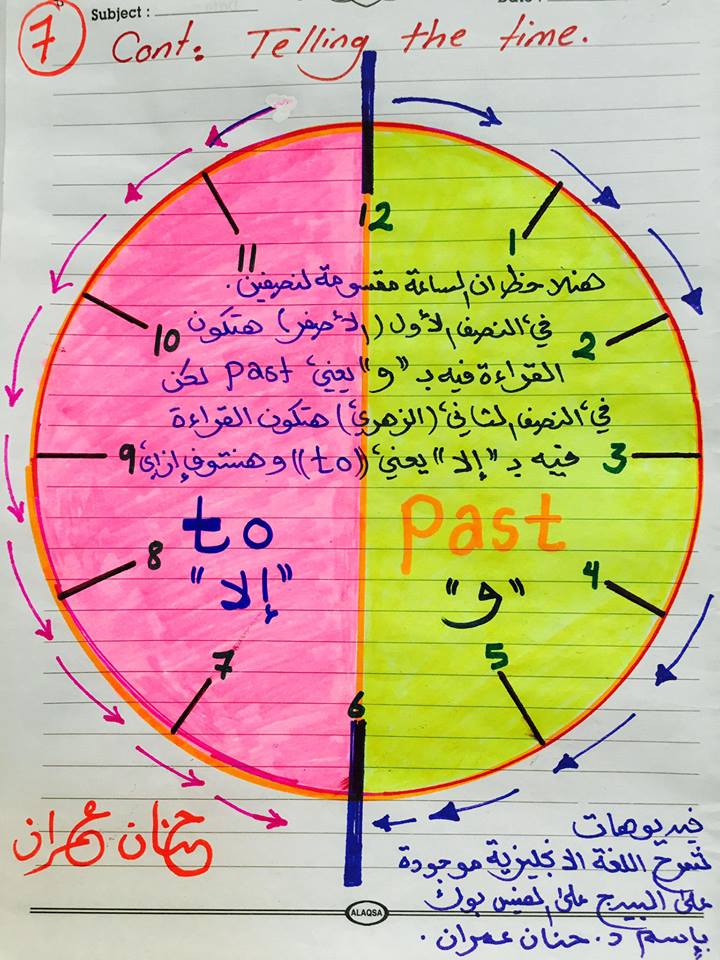 Subject :
7
Cont: Telling the time.
12
1
2
3
4
5
6
7
8
9
10
11
هنلاحظ ان الساعة مقسومة لنصفين.
في النصف الأول (الأصفر) هتكون
القراءة فيه بـ "و" يعني past لكن
في النصف الثاني (الزهري) هتكون القراءة
فيه بـ "إلا" يعني ((to)) وهنشوف إزاي
to
"إلا"
past
"و"
حنان عمران
فيديوهات
شرح اللغة الانجليزية موجودة
على البيدج على الفيس بوك
بإسم د. حنان عمران.
ALAQSA